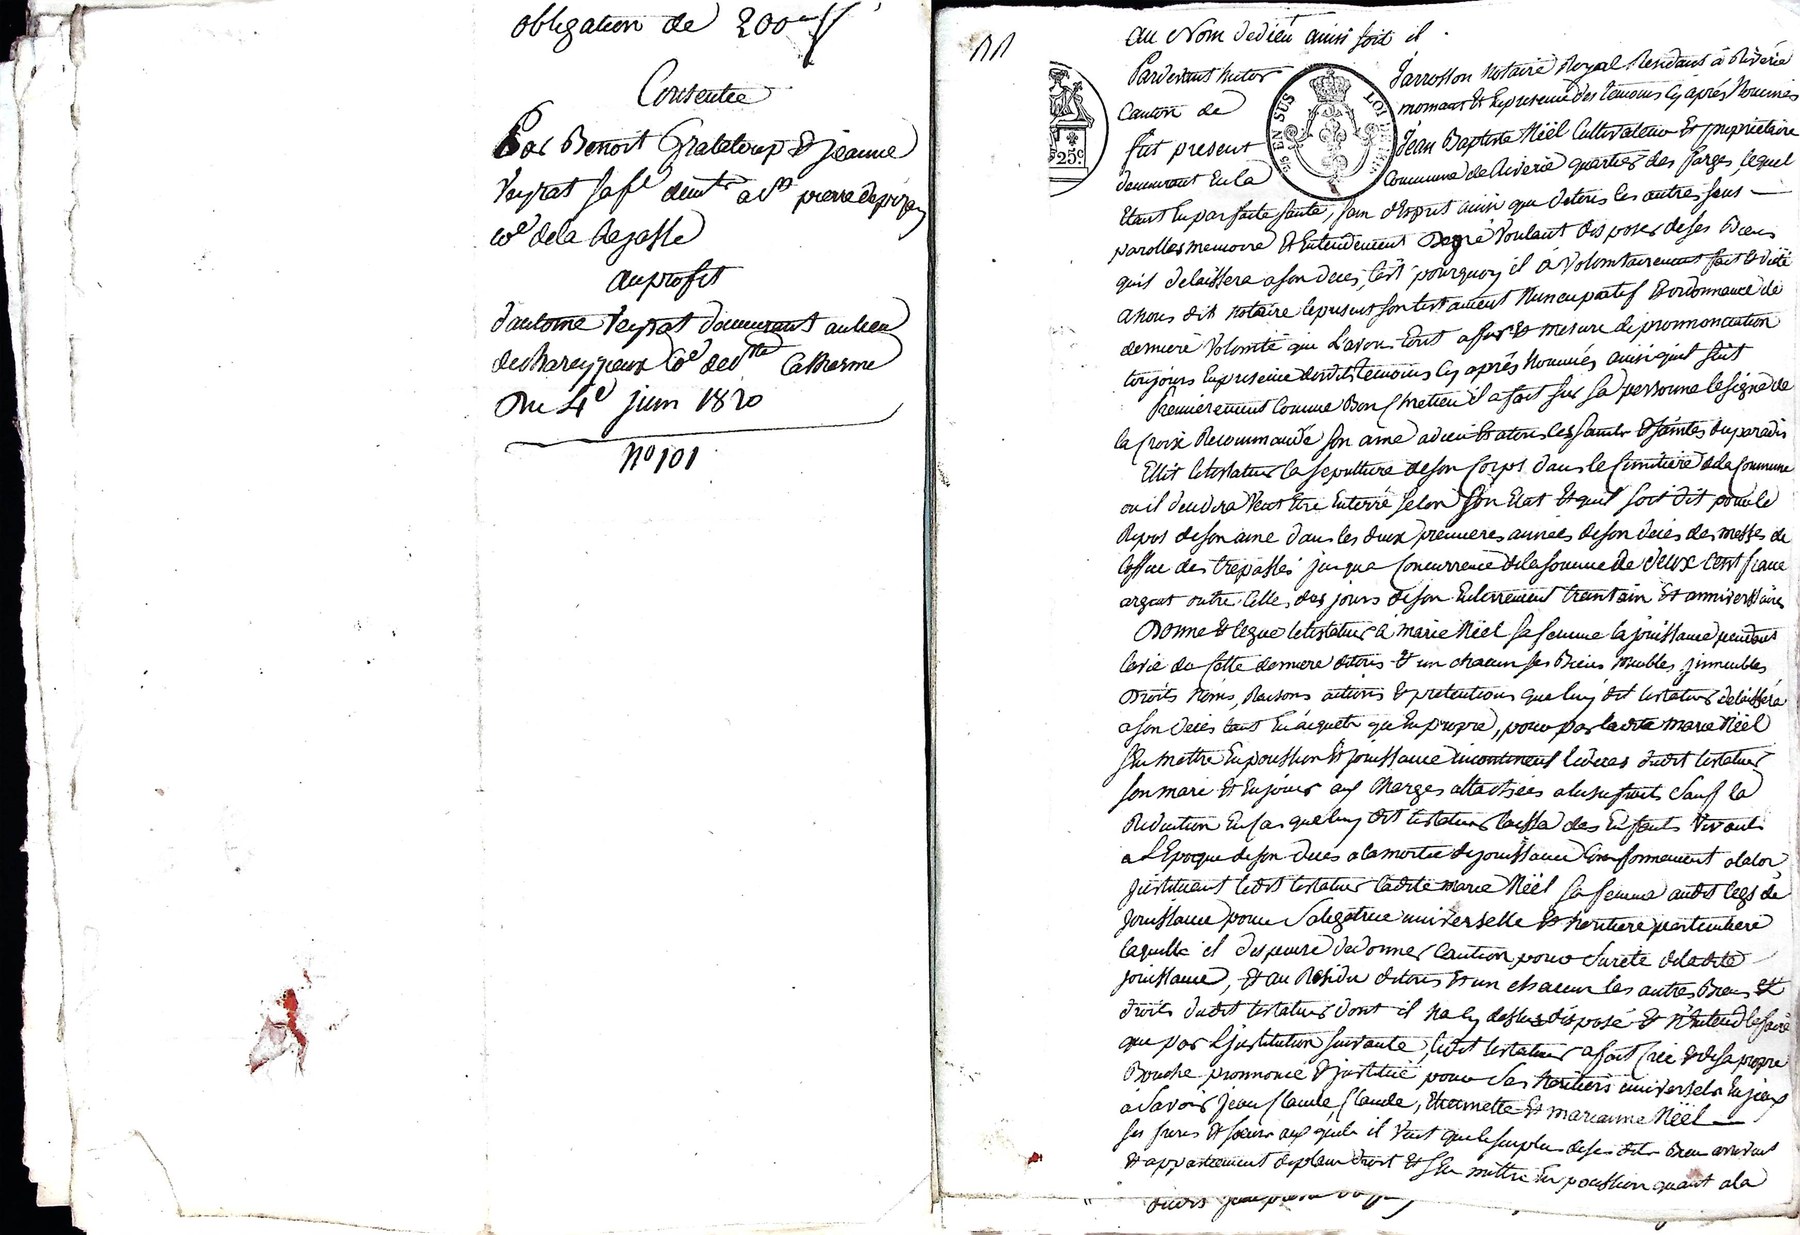 obligation de 200 ff
Consentie
Par Benoit Grataloup & jeanne
Veyrat sa fe demt a St pierre
coe de la hajasse
au profit
d'antoine Veyrat demeurant au lieu
de chareyzieux Coe de Ste Catherine
Du 4e juin 1820
No 101
111
au Nom de dieu ainsi soit il
Pardevant Me jarrosson Notaire Royal Residant à Riverie
Canton de mornant & En presence des temoins Cy après Nommés
fut present Jean Baptiste Néël Cultivateur & proprietaire
demeurant En la Commune de Riverie quartier des farges, lequel
25 EN SUS LOI DE
25c.
Etant En parfaite santé, sain d'Esprit ainsi que de tous les autres sens
parolles memoire & Entendement De gré Voulant disposer de ses Biens
quil delaissera a son deces, C'est pourquoy il à Volontairement fait & dicté
a Nous dit Notaire le present son testament Nuncupatif & ordonnance de
derniere Volonté que L'avons Ecrit a fur & mesure de prononciation
toujours En presence desdits temoins Cy après Nommés ainsi quil suit
Premierement Comme Bon Chretien il a fait sur sa personne le signe de
la Croix Recommandé son ame a dieu & a tous les saints & saintes du paradis
Elit le testateur la sepulture de son Corps dans le Cimitiere de la Commune
ou il deceddera Veut Etre Enterré selon son Etat & quil soit dit pour le
Repos de son ame dans les deux premieres années de son deces des messes de
l'office des trepassés jusqua Concurrence de la somme de deux Cent franc
argent outre Celles des jours de son Enterrement trentain & anniversaire
Donne & legue le testateur à marie Néël sa femme la jouissance pendant
la vie de Cette derniere de tous & un chacun ses Biens meubles, jmmeubles
Droits Noms, Raisons actions & pretentions que luy dit testateur delaissera
a son deces tant En acquets qu'En propre, pour par ladite marie Néël
s'En mettre En possession & jouissance incontinent le deces dudit testateur
son mari & En jouir aux charges attachées a lusufruit Sauf la
Reduction En Cas que luy dit testateur laissa des Enfants Vivants
a L'Epoque de son deces a la moitié de jouissance Conformement a la loi,
jnstituant ledit testateur ladite marie Néël sa femme audit legs de
jouissance pour sa legatrice universelle & heritiere particuliere
laquelle il dispense de donner Caution pour Sureté de ladite
jouissance, & au Residu de tous & un chacun les autres Biens &
droits dudit testateur dont il Na Cy dessus disposé & N'Entend le faire
que par L'jnstitution suivante, ledit testateur a fait Créé & de sa propre
Bouche prononcé & jnstitué pour Ses heritiers universels En jceux
à Savoir jean Claude, Claude, & marianne Néël
ses freres & soeurs aux quels il Veut que le surplus de ses dits Biens arrivent
& appartiennent de plein droit & s'En mettre En possession quant a la